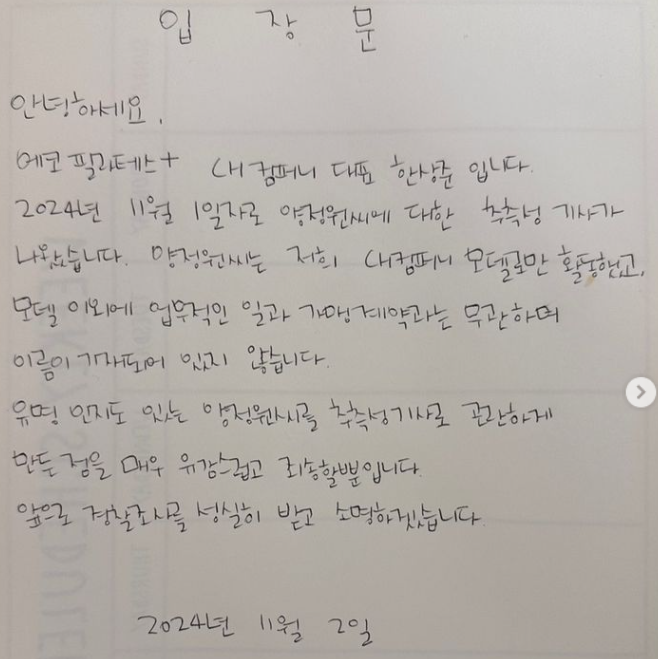 입 장 문
안녕하세요.
에코 필라테스+ 내 컴퍼니 대표 한상준 입니다.
2024년 11월 1일자로 양정원씨에 대한 추측성 기사가
나왔습니다. 양정원씨는 저희 내컴퍼니 모델로만 활동했고,
모델 이외에 업무적인 일과 가맹계약과는 무관하며
이름이 기재되어 있지 않습니다.
유명 인지도 있는 양정원씨를 추측성기사로 곤란하게
만든 점을 매우 유감스럽고 죄송할뿐입니다.
앞으로 경찰조사를 성실히 받고 소명하겠습니다.
2024년 11월 2일